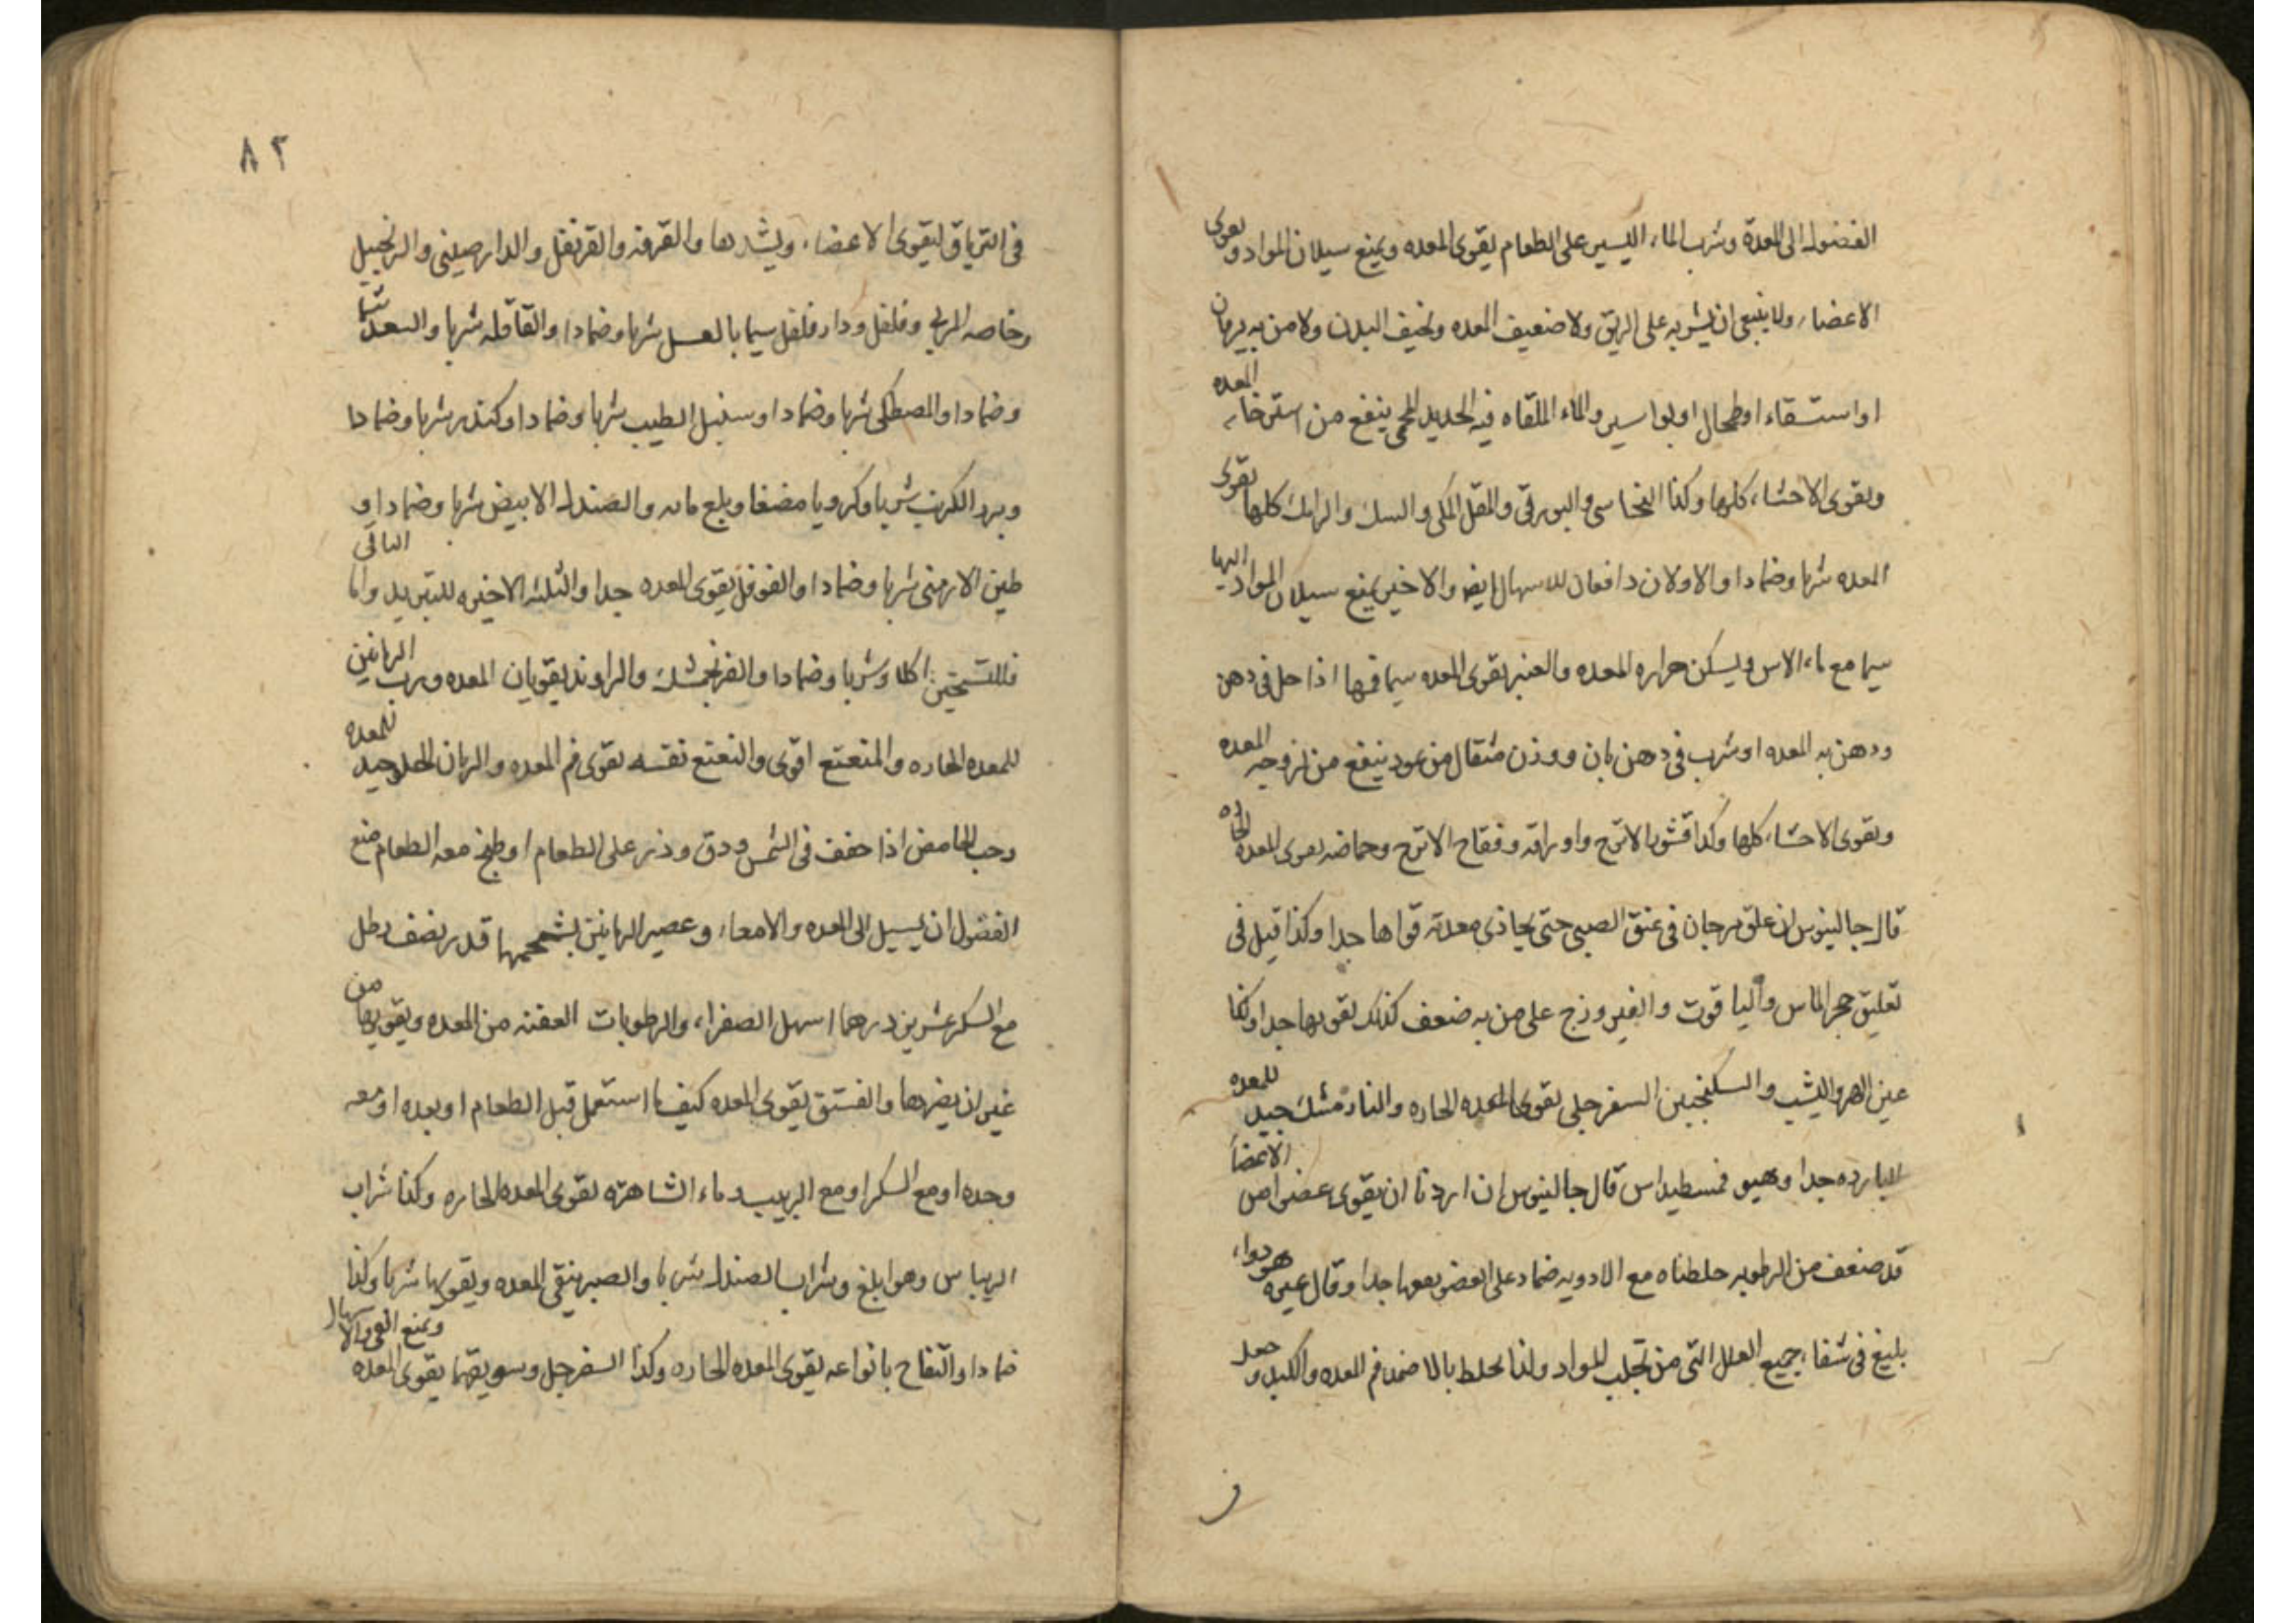 الفضول الى المعدة وشرب الماء اليسير على الطعام يقوى المعده ويمنع سيلان المواد ويقوى
الاعضاء ولا ينبغى ان يشربه على الريق ولا ضعيف المعده ونحيف البدن ولا من به يرقان
او استسقاء او طحال او بواسير والماء الملقاه فيه الحديد المحمى ينفع من استرخاء المعده
ويقوى الاحشاء كلها وكذا النحاسى والبورقى والمقل المكى والسك والرامك كلها يقوى
المعده شربا وضمادا والاولان دافعان للاسهال ايضا والاخير يمنع سيلان المواد اليها
سيما مع ماء الاس ويسكن حراره المعده والعنبر يقوى المعده سيما فمها اذا حل فى دهن
ودهن به المعده او شرب فى دهن بان ووزن مثقال من عود ينفع من لزوجه المعده
ويقوى الاحشاء كلها وكذا قشور الاترج واوراقه وفقاح الاترج وحماضه يقوى المعده الحاره
قال جالينوس ان علق مرجان فى عنق الصبى حتى يحاذى معدته قواها جدا وكذا قيل فى
تعليق حجر الماس والياقوت والفيروزج على من به ضعف كذلك تقويها جدا وكذا
عين الهر واليشب والسكنجبين السفرجلى يقوى المعده الحاره والنارمشك جيد للمعده
البارده جدا وهيوفسطيداس قال جالينوس ان اردنا ان يقوى عضوا من الاعضا
قد ضعف من الرطوبه خلطناه مع الادويه ضماد على العضو يقويها جدا وقال غيره هو دواء
بليغ فى شفاء جميع العلل التى من تجلب المواد ولذا يخلط بالاضمد فم المعده والكبد و جعل
ف
٨٢
فى الترياق ليقوى الاعضاء ويشدها والقرفه والقرنفل والدارصينى والزنجبيل
وخاصه المربى وفلفل ودارفلفل سيما بالعسل شربا وضمادا والقاقله شربا والسعد شربا
وضمادا والمصطكى شربا وضمادا وسنبل الطيب شربا وضمادا وكندر شربا وضمادا
وبزر الكرنب شربا وكرويا مضغا وبلع مائه والصندل الابيض شربا وضمادا و
طين الارمنى شربا وضمادا والفوفل يقوى المعده جدا والثلثه الاخيره للتبريد واما الباقى
فللتسخين اكلا وشربا وضمادا والفرنجمشك والراوند يقويان المعده ورب الرمانين
للمعده الحاره والمنعنع اقوى والنعنع نفسه يقوى فم المعده والرمان الحلو جيد للمعده
وحب الحامض اذا جفف فى الشمس ودق وذر على الطعام او طبخ معه الطعام منع
الفضول ان يسيل الى المعده والامعاء وعصير الرمانين بشحمهما قدر نصف رطل
مع السكر عشرين درهما اسهل الصفراء والرطوبات العفنه من المعده ويقويها من
غير ان يضرها والفستق يقوى المعده كيف ما استعمل قبل الطعام او بعده او معه
وحده او مع السكر او مع الزبيب وماء الشاهتره يقوى المعده الحاره وكذا شراب
الريباس وهو ابلغ وشراب الصندل شربا والصبر ينقى المعده ويقويها شربا وكذا
ضمادا والتفاح بانواعه يقوى المعده الحاره وكذا السفرجل وسويقهما يقوى المعده ويمنع القى والاسهال